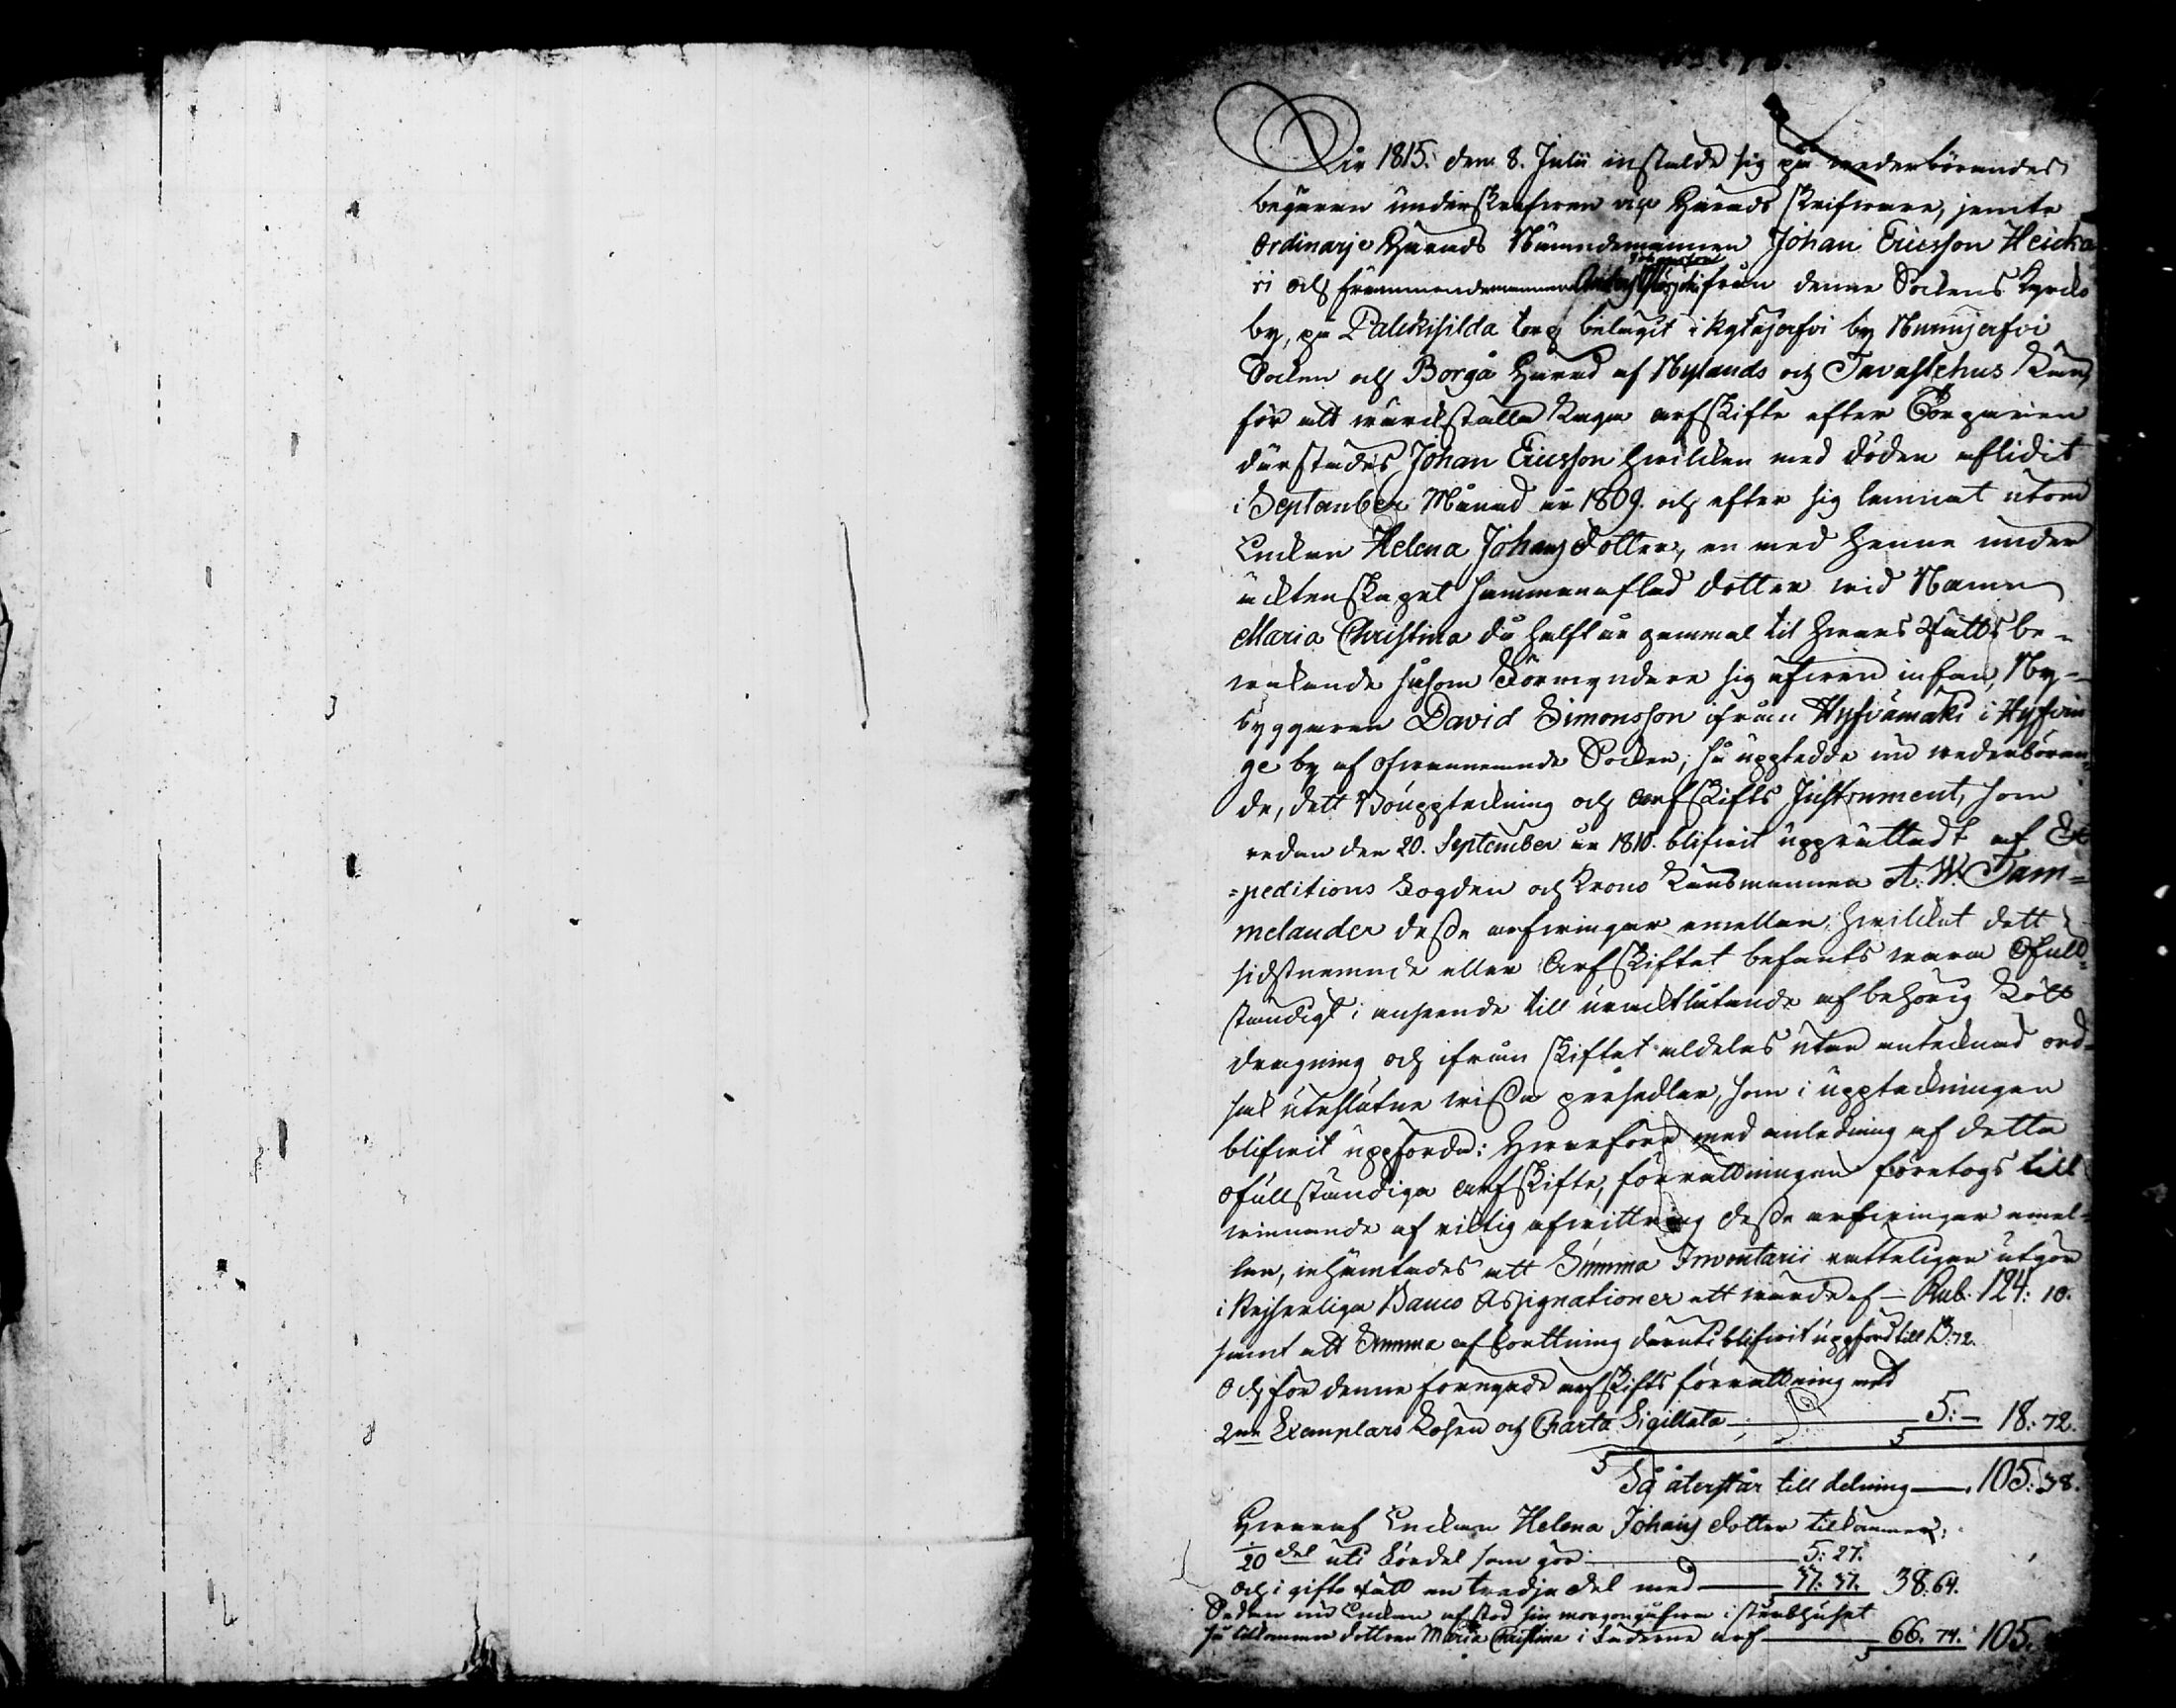 År 1815. den 8. Julii instälde sig på wederbörandes
begäran underskrefwen vice Härads Skrifware, jemte
Ordinarje Härads Nämndemannen Johan Ericsson Heicka
ri och från denne Sockens Kyrko
by, på Palckisilda torp belägit i Kytäjerfwi by Nurmijerfwi
Socken och Borgå Härad af Nylands och Tavastehus Län,
för att wärckställa Laga arfskifte efter Torparen
därstädes Johan Ericsson hwilcken med döden aflidit
i September Månad år 1809. och efter sig lämnat utom
Enckan Helena Johansdotter, en med henne under
äcktenskapet sammanaflad dotter wid Namn
Maria Christina då halft år gammal til hwars Rätts be-
wakande såsom Förmyndare sig äfwen infan, Ny-
byggaren David Simonsson ifrån Hyfwämäki i Hyfwin
ge by af ofwannemnde Socken; så uppteddes nu wederböran-
de, dett Bouppteckning och arfskifts Instrument, som
redan den 20. September år 1810. blifwit upprättadt af Ex
=peditions Fogden och Krono Länsmannen A. W. Tam=
melander desse arfwingar emellan, hwilcket dett
sidstnemnde eller Arfskiftet befants wara Ofull-
ständigt i anseende till uracktlåtande af behörig Lått
dragning och ifrån skiftet aldeles utan antecknad ord-
sak uteslutne wissa persedlar, som i uppteckningen
blifwit uppförde: Hwarföre med anledning af detta
ofullständiga arfskifte, förrättningen företogs till
winnande af ricktig afwittring desse arfwingar emel-
lan, inhämtades att Summa Inventarii rätteligen utgör
i Kejserliga Banco Assignationer ett wärde af — Rub. 124: 10.
samt att Summa afkortning däruti blifwit uppförd till 13:72.
Och för denne förnyade arfskifts förrättning med
2ne Exemplars Lösen och Charta Sigillata — 5:— 18:72.
Så återstår till delning — 105:38.
Hwaraf Enckan Helena Johansdotter tilkommer:
1/20 del uti Fördel som gör — 5:27.
Och i gifto rätt en tredje del med — 37. 38.64.
Sedan nu Enckan afstod sin morgongåfwa i sterbhuset
så tilkommer dottren Maria Christina i fäderne arf — 66. 74. 105.